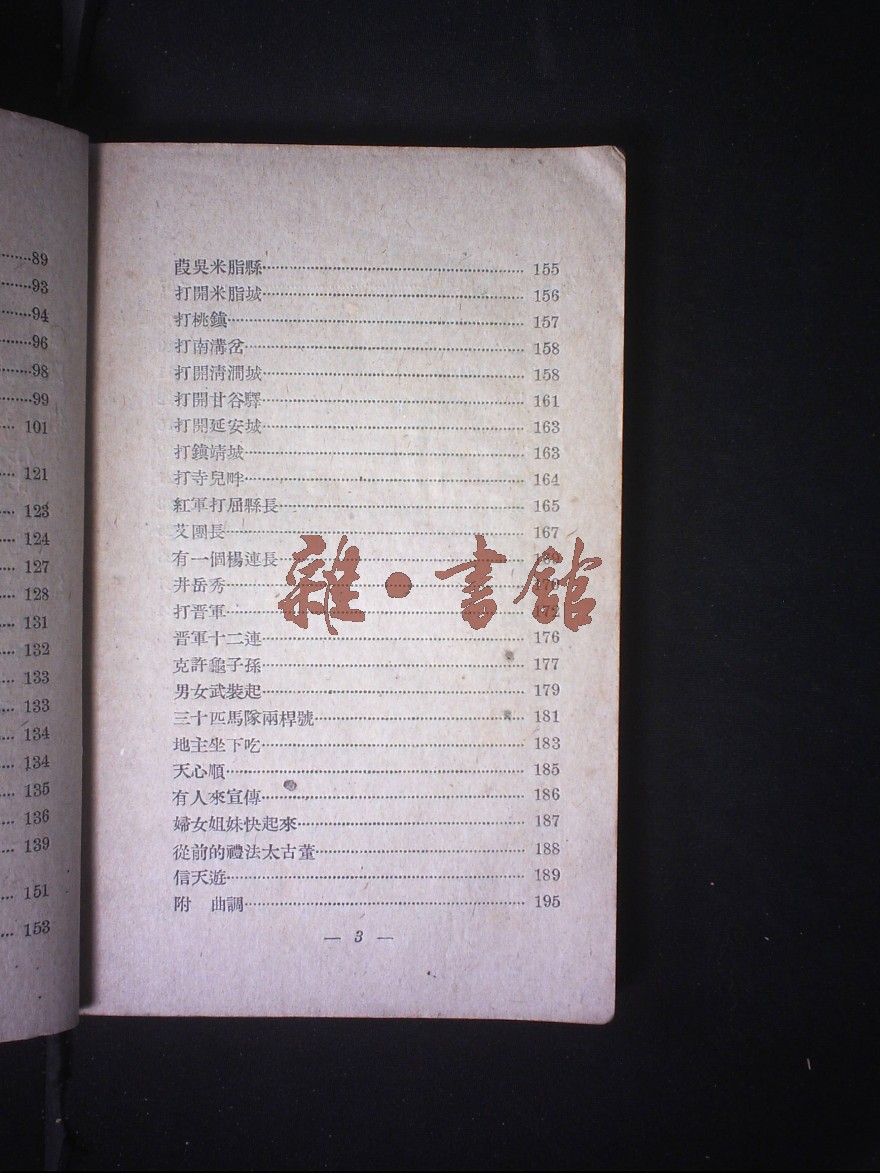 89
93
94
96
98
99
101
121
123
124
127
128
131
132
133
133
134
134
135
136
139
151
153
葭吳米脂縣 155
打開米脂城 156
打桃鎮 157
打南溝岔 158
打開淸澗城 158
打開甘谷驛 161
打開延安城 163
打鎮靖城 163
打寺兒畔 164
紅軍打屈縣長 165
艾團長 167
有一個楊連長
井岳秀 170
打晋軍 172
晋軍十二連 176
克許龜子孫 177
男女武裝起 179
三十匹馬隊兩桿號 181
地主坐下吃 183
天心順 185
有人來宣傳 186
婦女姐妹快起來 187
從前的禮法太古董 188
信天遊 189
附 曲調 195
— 3 —
雜·書館